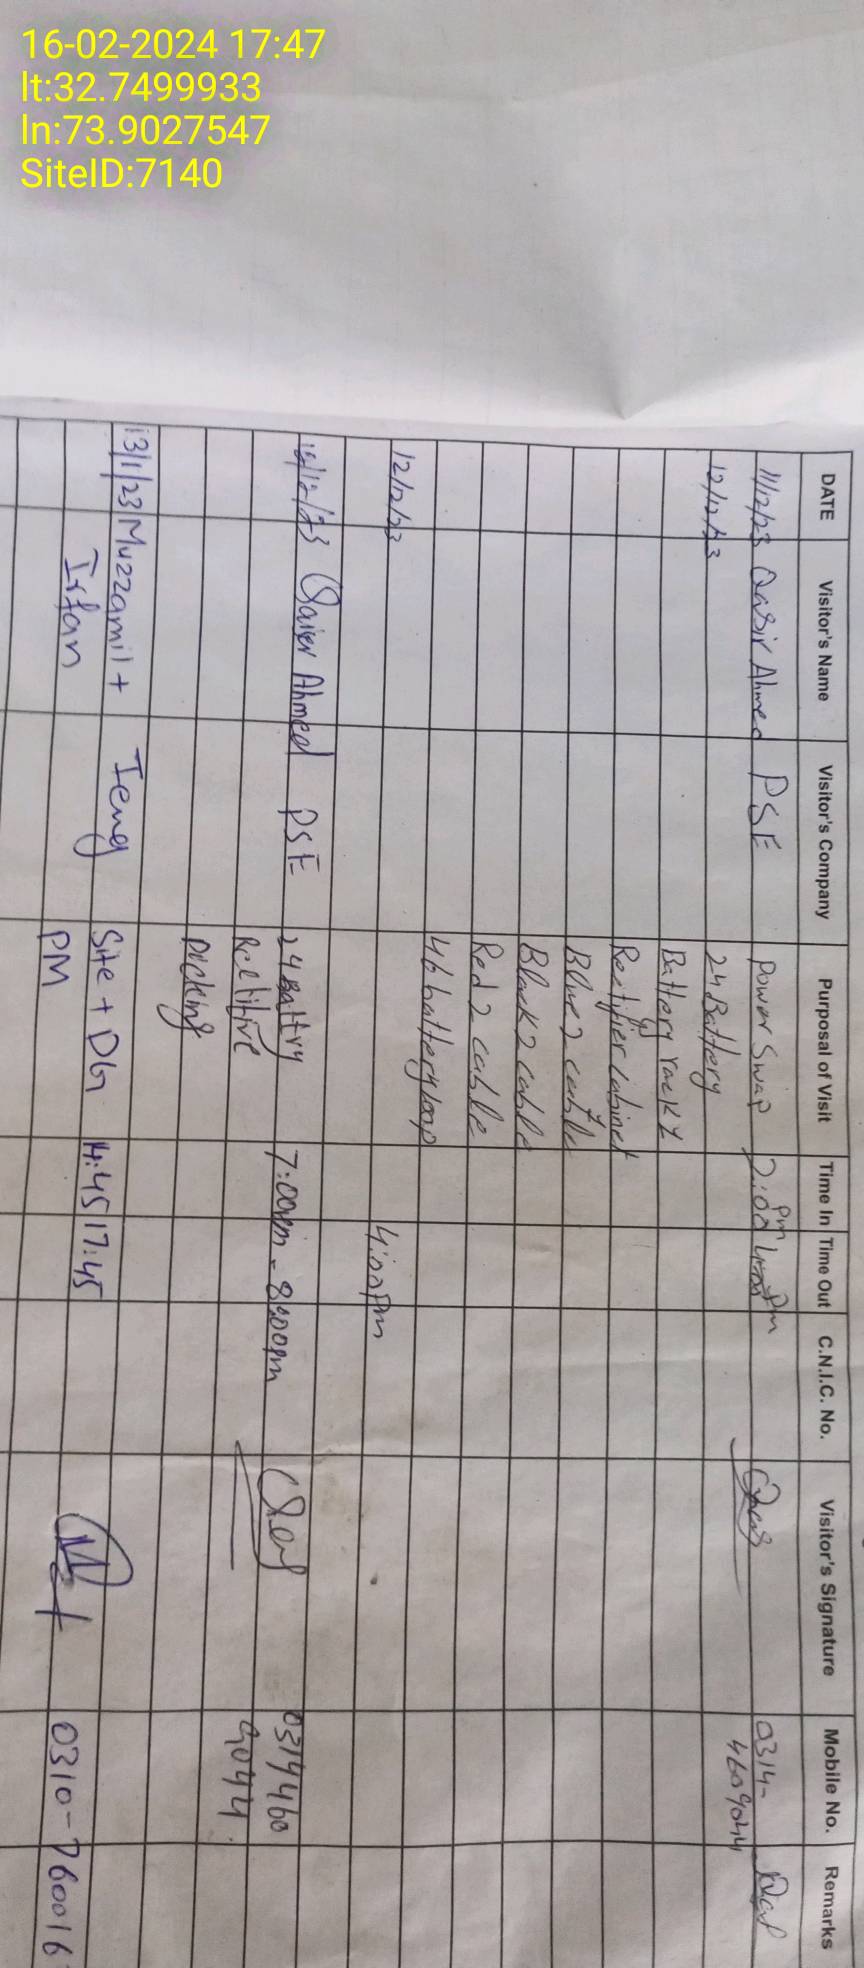 16-02-2024 17:47
lt:32.7499933
ln:73.9027547
SiteID:7140
DATE Visitor's Name Visitor's Company Purposal of Visit Time In Time Out C.N.I.C. No. Visitor's Signature Mobile No. Remarks
11/12/23 Qasir Ahmed PSE Power Swap 2:00 pm pm 0314-
12/12/23 24 Battery 4609044
Battery rack 1
Rectifier Cabinet
Blue 2 cable
Black 2 cable
Red 2 cable
46 battery loop
12/12/23 4:00 Pm
12/12/23 Qaiser Ahmed PSE 24 Battry 7:00pm - 8:00pm 0314460
Rectitive 9044
Picking
13/1/23 Muzzamil + Teng Site + DG 14:45 17:45
Irfan PM 0310-760016